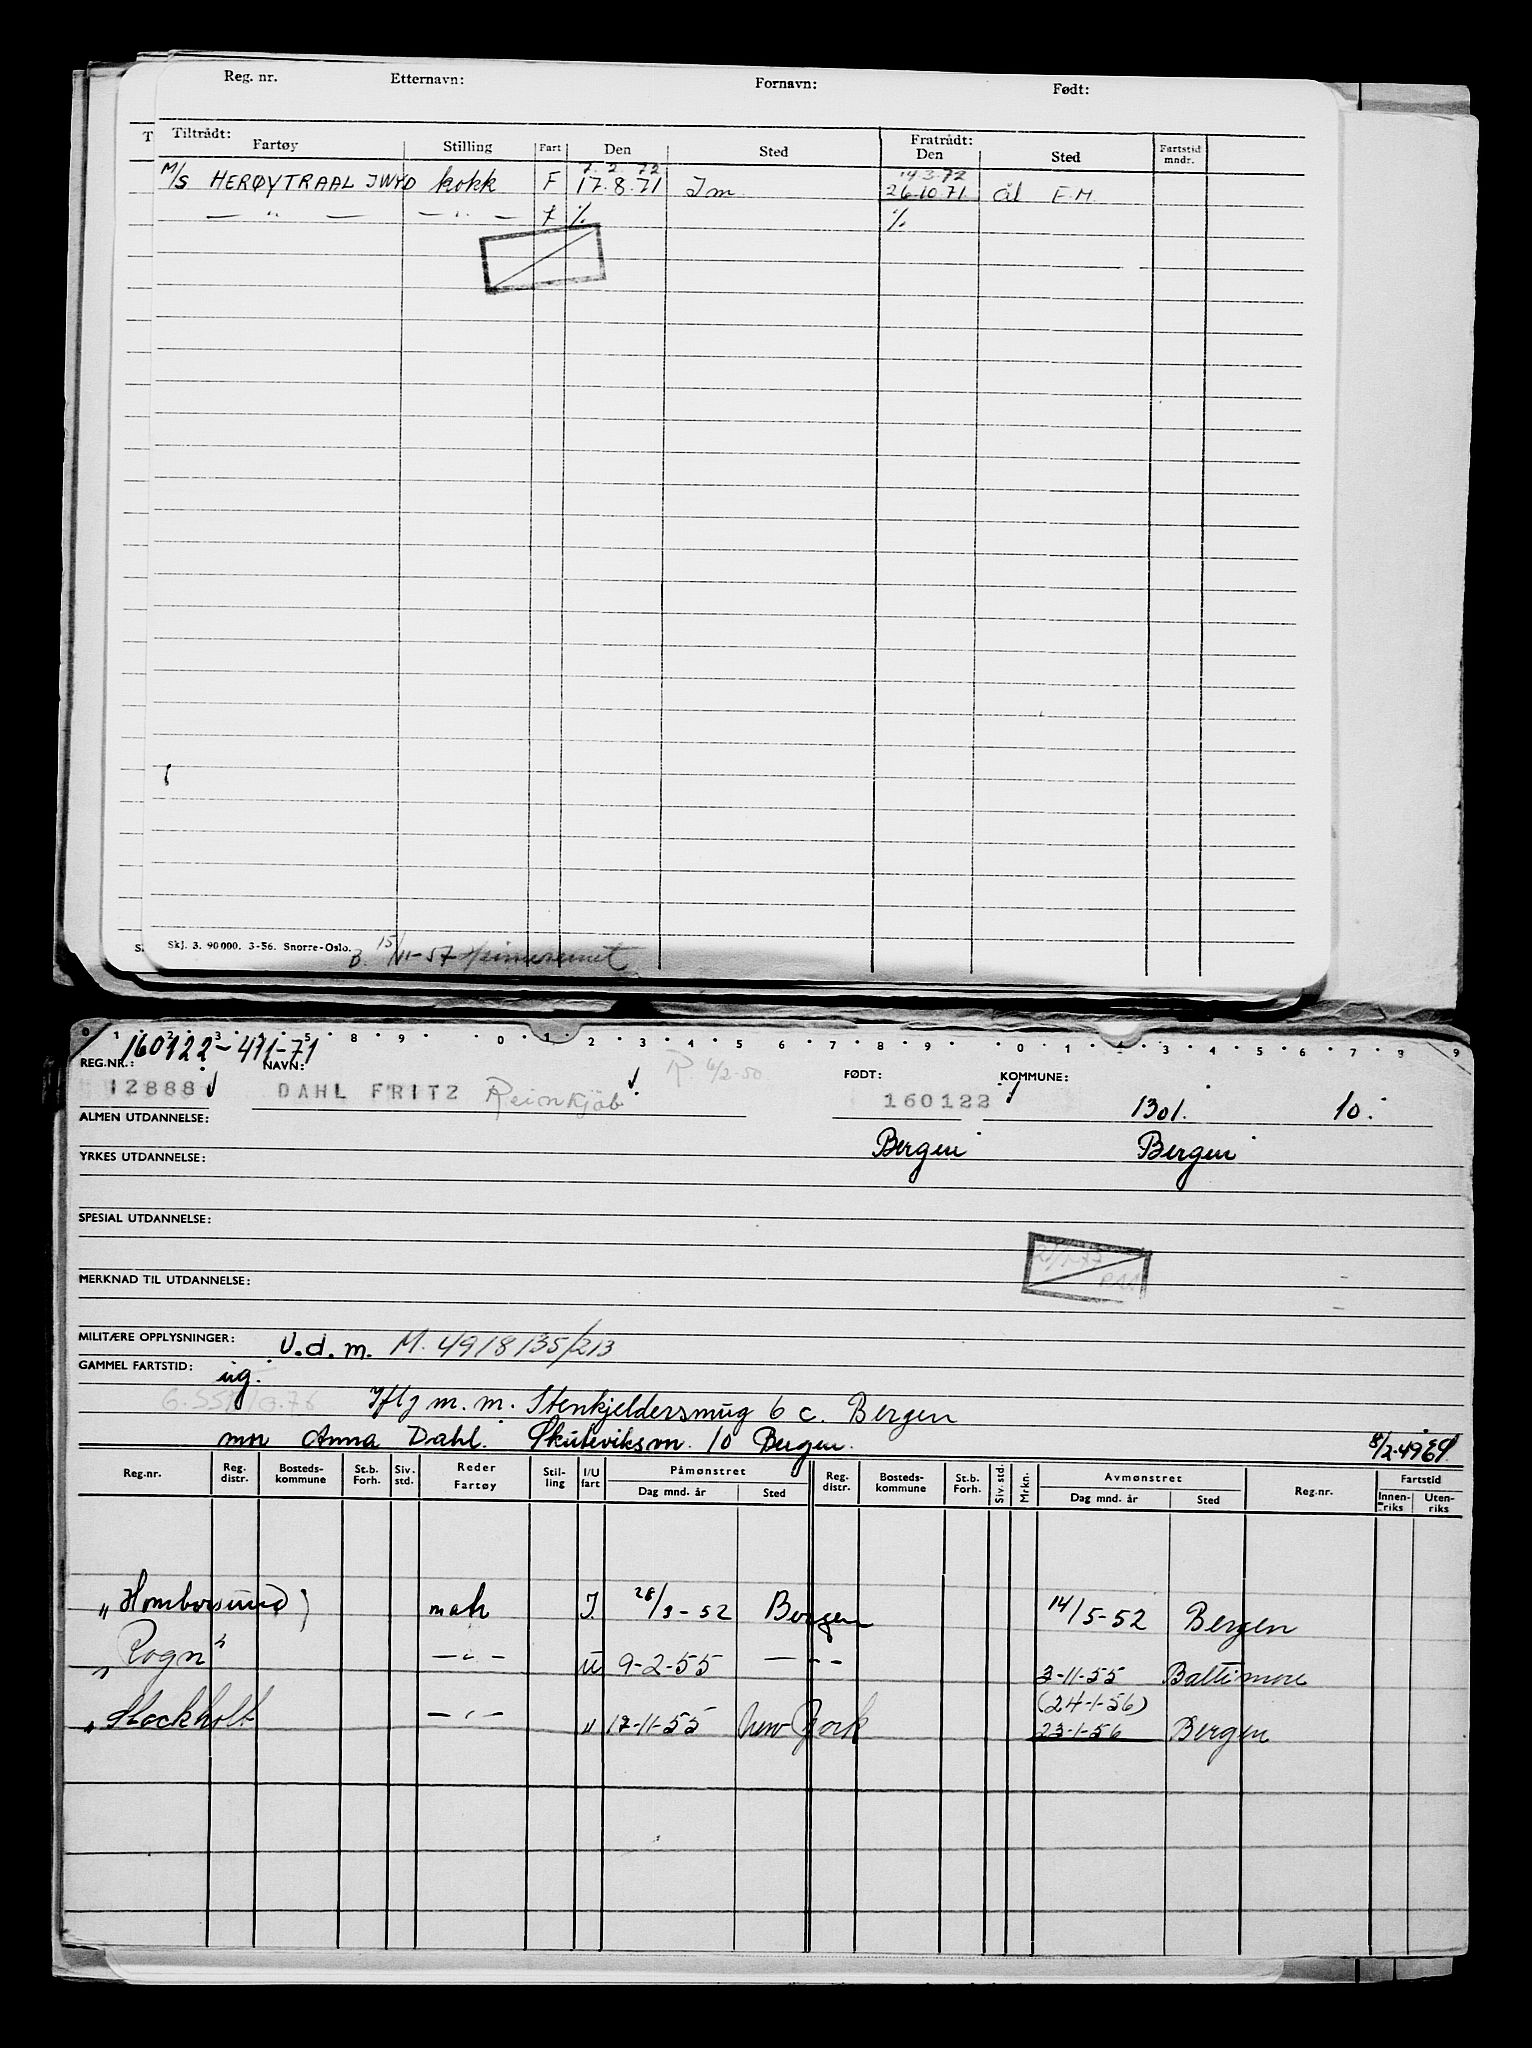 Reg. nr. Etternavn: Fornavn: Født:
Tiltrådt: Fratrådt:
Fartøy Stilling Fart Den Sted Den Sted Fartstid mndr.
7.2.72 14.3.72
M/S HERØYTRAAL JWYD kokk F 17.8.71 Im 26.10.71 Ål F.H.
— " — — " — F % %
Skj. 3. 90000. 3-56. Snorre-Oslo.
B. 15/11-57
160122-471-71
REG.NR.: NAVN: FØDT: KOMMUNE:
12888 DAHL FRITZ R. 6/2-50 160122 1301. 10.
ALMEN UTDANNELSE:
Bergen Bergen
YRKES UTDANNELSE:
SPESIAL UTDANNELSE:
MERKNAD TIL UTDANNELSE:
MILITÆRE OPPLYSNINGER: U.d.m. M. 4918135/213
GAMMEL FARTSTID: ug.
m.m. Stenkjeldersmug 6 c. Bergen
mor Anna Dahl. Skuteviksvn. 10 Bergen. 8/2-49
Reg.nr. Reg. distr. Bosteds-kommune St.b. Forh. Siv. std. Reder Fartøy Stil-ling I/U fart Påmønstret Dag mnd. år Sted Reg-distr. Bosteds-kommune St.b. Forh. Siv. std. Mrkn. Avmønstret Dag mnd. år Sted Reg.nr. Fartstid Innen-riks Uten-riks
"Homborsund" mah I. 28/3-52 Bergen 14/5-52 Bergen
"Rogn" — " — U 9-2-55 — " — 3-11-55 Baltimore
(24-1-56)
"Stockholt — " — " 17-11-55 New York 23-1-56 Bergen